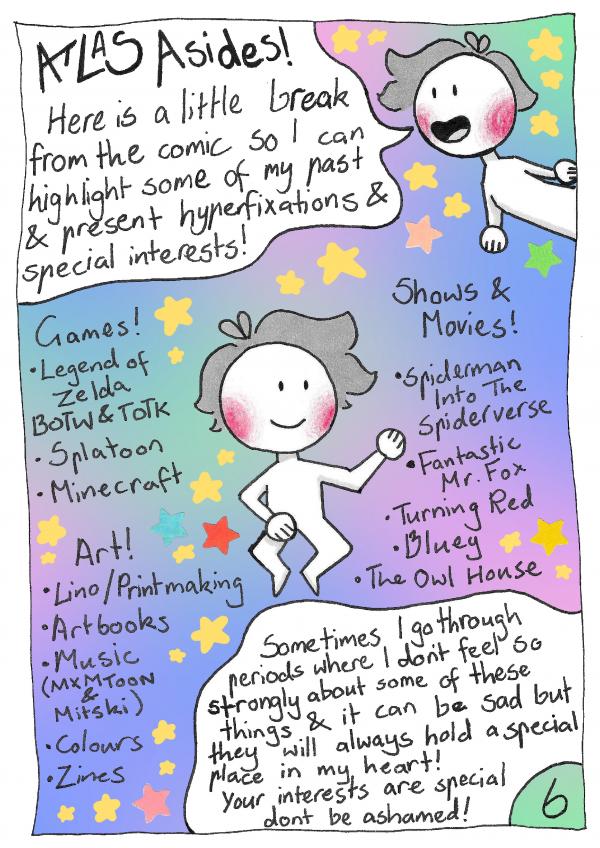 ATLAS Asides!
Here is a little break
from the comic so I can
highlight some of my past
& present hyperfixations &
special interests!
Games!
•Legend of
Zelda
BOTW & TOTK
•Splatoon
•Minecraft
Art!
•Lino/Printmaking
•Artbooks
•Music
(MXMTOON
&
Mitski)
•Colours
•Zines
Shows &
Movies!
•Spiderman
Into The
Spiderverse
•Fantastic
Mr. Fox
•Turning Red
•Bluey
•The Owl House
Sometimes I go through
periods where I dont feel so
strongly about some of these
things & it can be sad but
they will always hold a special
place in my heart!
Your interests are special
dont be ashamed!
6